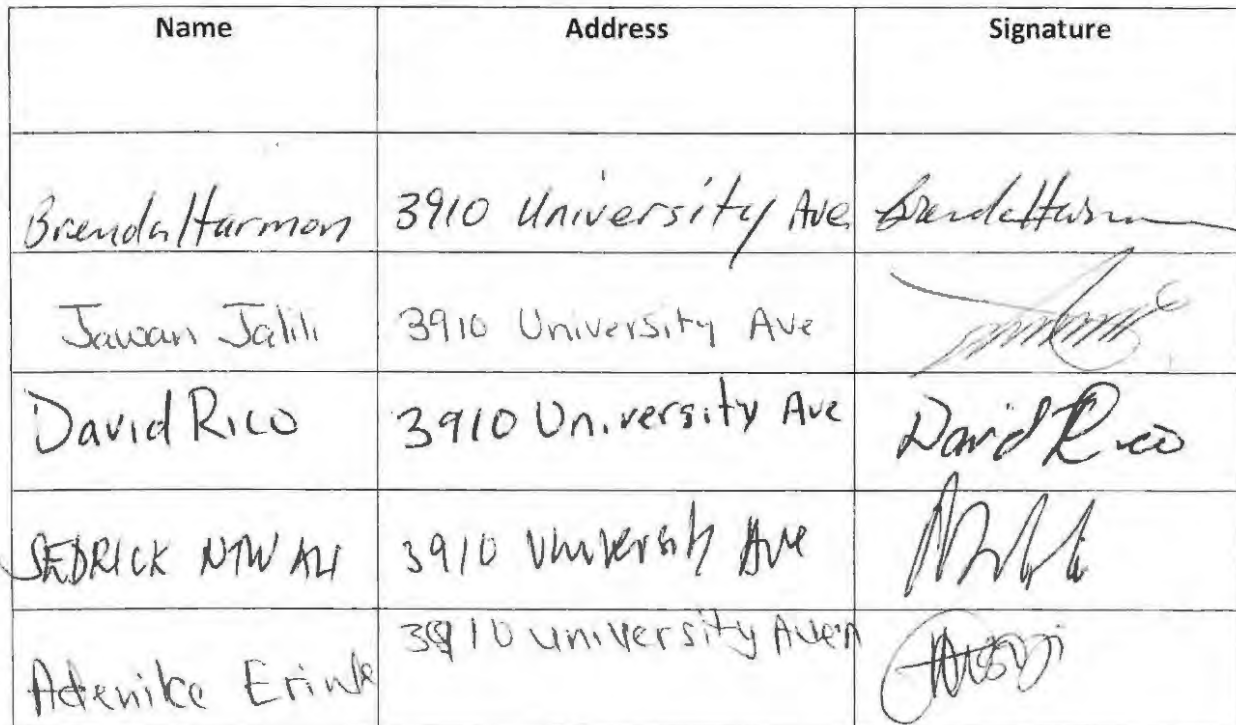 Name Address Signature
Brenda Harmon 3910 University Ave Brenda Harmon
Jawan Jalili 3910 University Ave
David Rico 3910 University Ave David Rico
SEDRICK NTWALI 3910 University Ave
Adenike 3910 University Ave